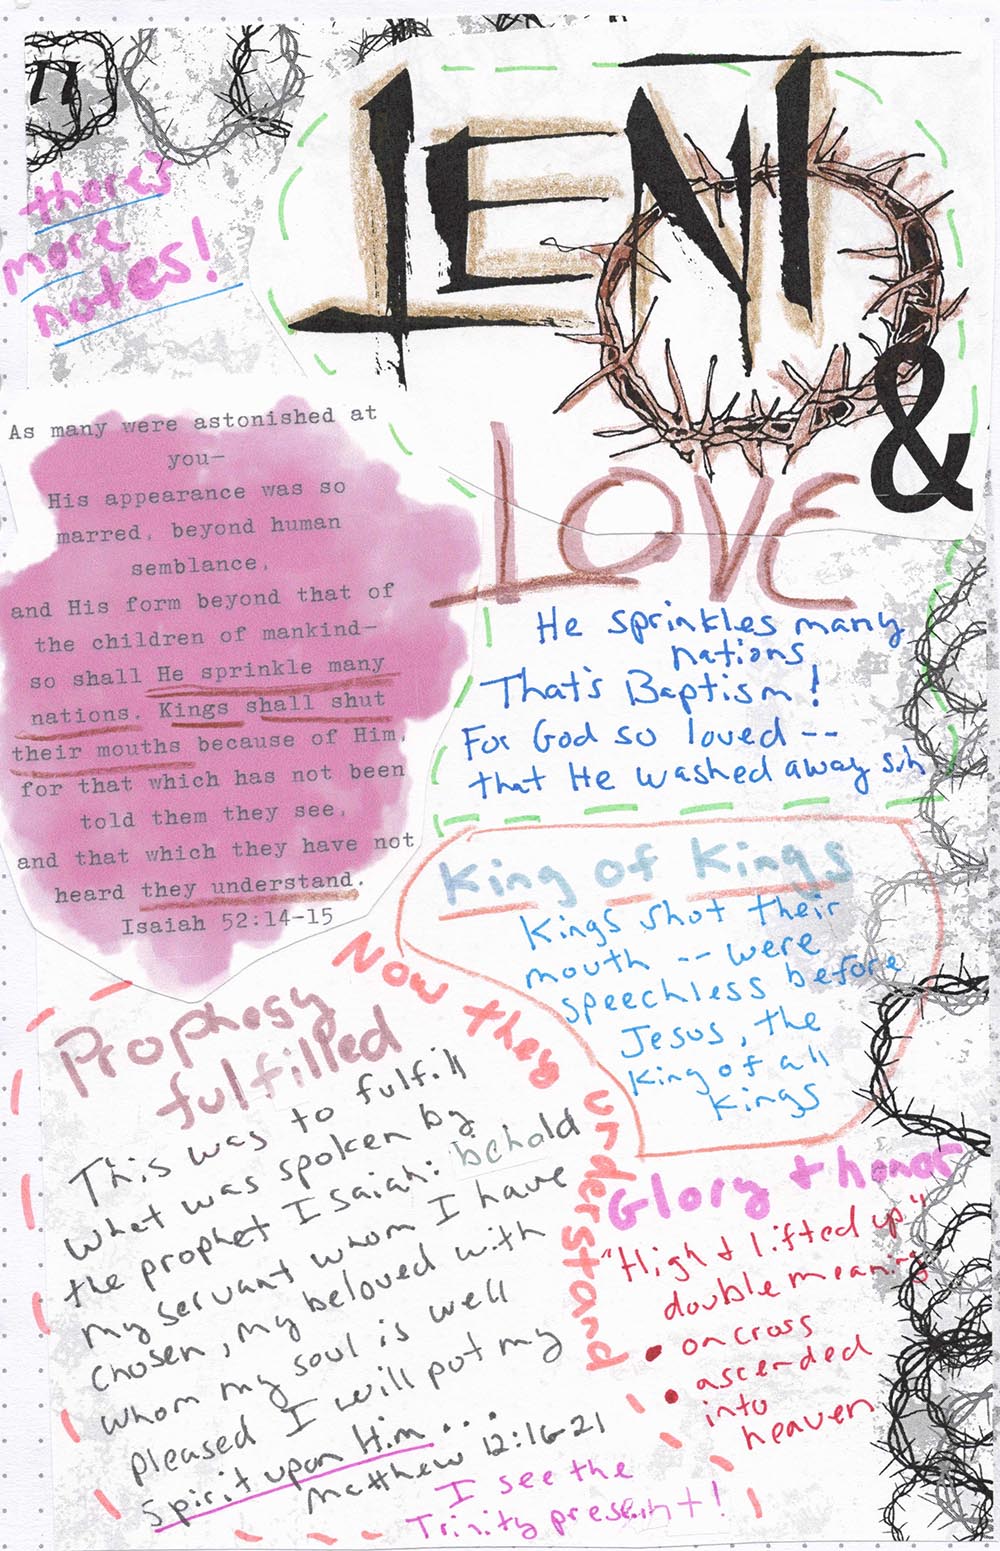 there's
more
notes!
LENT
&
LOVE
As many were astonished at
you—
His appearance was so
marred, beyond human
semblance,
and His form beyond that of
the children of mankind—
so shall He sprinkle many
nations. Kings shall shut
their mouths because of Him,
for that which has not been
told them they see,
and that which they have not
heard they understand.
Isaiah 52:14-15
He sprinkles many
nations
That's Baptism!
For God so loved --
that He washed away sin
King of Kings
Kings shut their
mouth -- were
speechless before
Jesus, the
King of all
Kings
Now they understand
Prophesy
fulfilled
This was to fulfill
what was spoken by
the prophet Isaiah: behold
my servant whom I have
chosen, my beloved with
whom my soul is well
pleased I will put my
Spirit upon Him...
Matthew 12:16-21
I see the
Trinity present!
Glory + honor
"High + lifted up"
double meaning
• on cross
• ascended
into
heaven